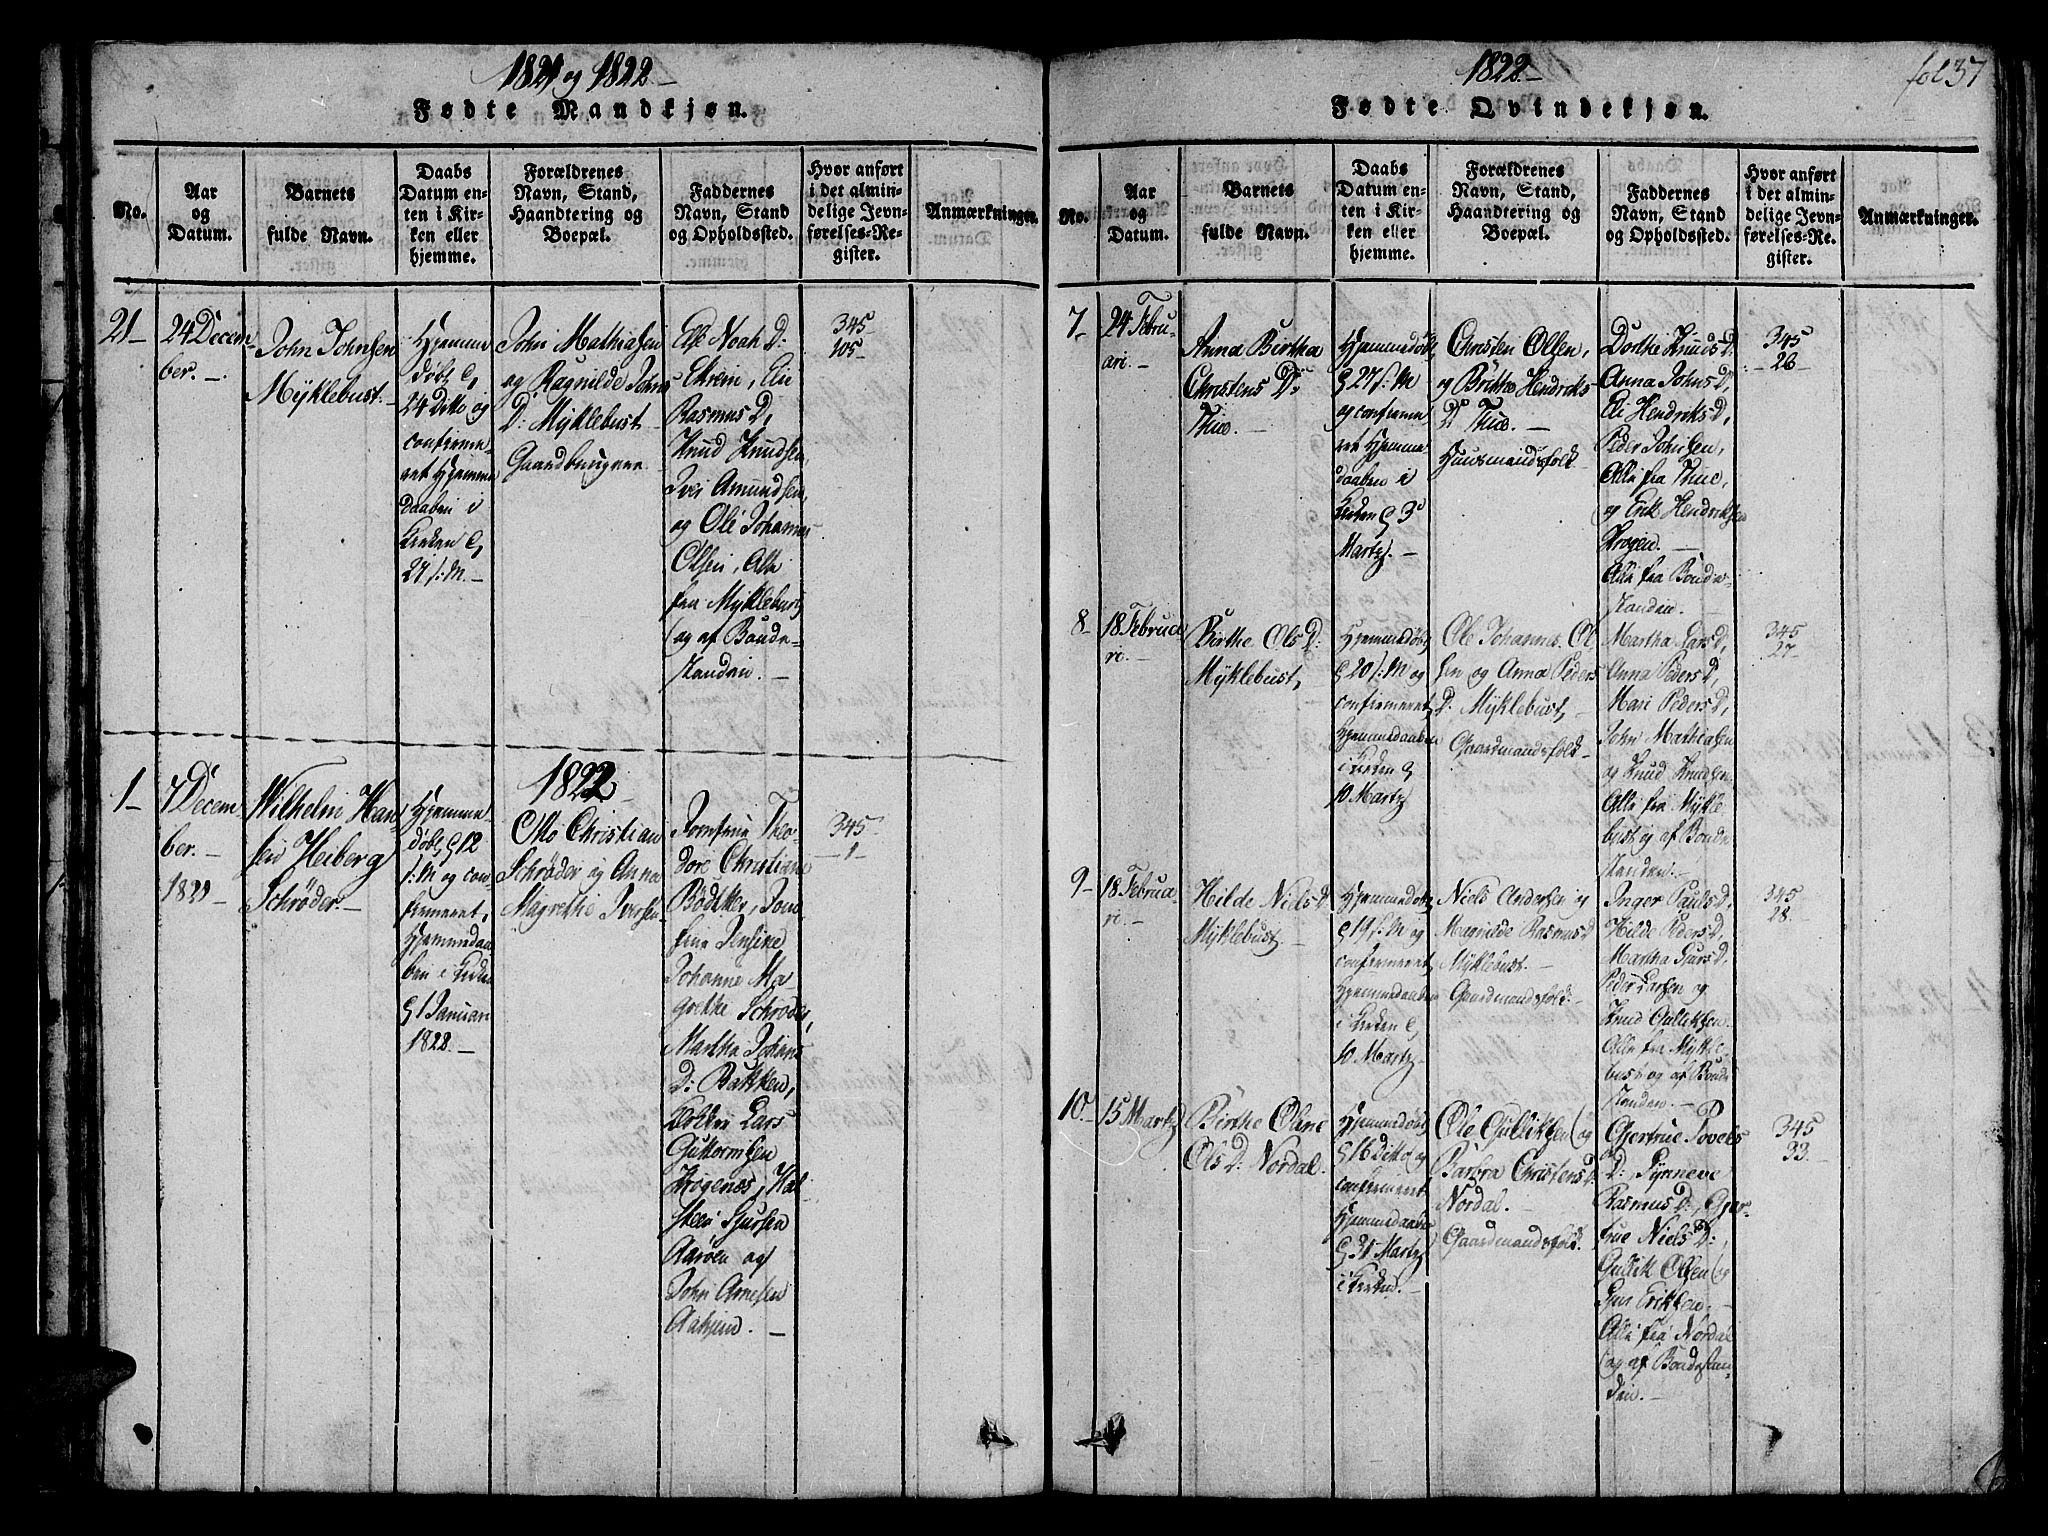 1821 og 1822
Fødte Mandkjøn.
No.
Aar
og
Datum.
Barnets
fulde Navn.
Daabs
Datum en-
ten i Kir-
ken eller
hjemme.
Forældrenes
Navn, Stand,
Haandtering og
Boepæl.
Faddernes
Navn, Stand
og Opholdssted.
Hvor anført
i det almin-
delige Jevn-
førelses-Re-
gister.
Anmærkninger.
21
24 Decem-
ber.
John Johnsen
Mÿklebust
Hjemme
døbt
24 Ditto og
confirme
ret Hjemme
daaben i
Kirken
27 s: M.
John Mathiasen
og Ragnilde Johns
D: Mÿklebust
Gaardbrugere
Else Noah D:
Ekrein, Eli
Rasmus D,
Knud Knudsen,
Iver Amundsen,
og Ole Johannes
Olsen, Alle
fra Mÿklebust
og af Bonde-
standen.
345
105
1822
1
7 Decem
ber.
1821
Wilhelm Han
sen Heiberg
Schrøder.
Hjemme
døbt 12
s: M og con-
firmeret
Hjemmedaa-
ben i Kirken
1 Januari
1822.
Otto Christian
Schrøder og Anna
Magrethe Iversen
Jomfrue Theo-
dore Christiane
Bødtker, Jom
frue Jensine
Johanne Ma-
grethe Schrøder,
Martha Johans
D: Bakken,
Lars
Guttormsen
Krogenæs, Hal
steen Sjursen
Aarøen og
John Arnesen
345
1
1822
fol 37
Fødte Qvindekjøn.
No.
Aar
og
Datum.
Barnets
fulde Navn.
Daabs
Datum en-
ten i Kir-
ken eller
hjemme.
Forældrenes
Navn, Stand,
Haandtering og
Boepæl.
Faddernes
Navn, Stand
og Opholdssted.
Hvor anført
i det almin-
delige Jevn-
førelses-Re-
gister.
Anmærkninger.
7
24 Febru-
ari.
Anna Birtha
Christens D:
Thue.
Hjemmedøbt
27 s: M
og confirme
ret Hjemme
daaben i
Kirken 3
Martz.
Christen Olsen,
og Britthe Hendriks
D: Thue.
Huusmandsfolk
Dorthe Knuds D.
Anna Johns D,
Eli Hendriks D,
Peder Johnsen,
Alle fra Thue,
og Erik Hendriksen
Krogen.
Alle fra Bonde-
standen.
345
26
8
18 Februa
ri.
Birthe Ols D:
Mÿklebust,
Hjemmedøbt
20 s: M og
confirmeret
Hjemmedaaben
i Kirken
10 Martz
Ole Johannes Ol
sen og Anna Peders
D: Mÿklebust
Gaardmandsfolk
Martha Lars D,
Anna Peders D,
Mari Peders D,
John Mathiasen
og Knud Knudsen
Alle fra Mÿkle
bust og af Bonde
standen.
345
27
9
18 Februa
ri.
Hilde Niels D
Mÿklebust
Hjemmedøbt
19 s: M og
confirmeret
Hjemmedaaben
i Kirken
10 Martz
Niels Andersen og
Magnilde Rasmus D
Mÿklebust.
Gaardmandsfolk
Inger Pauls D,
Hilde Peders D,
Martha Sjurs D,
Peder Larsen og
Knud Gulliksen.
Alle fra Mÿkle-
bust og af Bonde
standen.
345
28.
10
15 Martz
Birthe Oline
Ols D: Nordal.
Hjemmedøbt
16 Ditto og
confirmeret
Hjemmedaaben
31 Martz
i Kirken.
Ole Gulliksen og
Barbra Christens D.
Nordal.
Gaardmandsfolk.
Gjertrue Povels
D: Synneve
Rasmus D:, Gjer-
true Niels D:,
Gullik Olsen og
Sjur Eriksen.
Alle fra Nordal
og af Bondestan
den.
345
33.